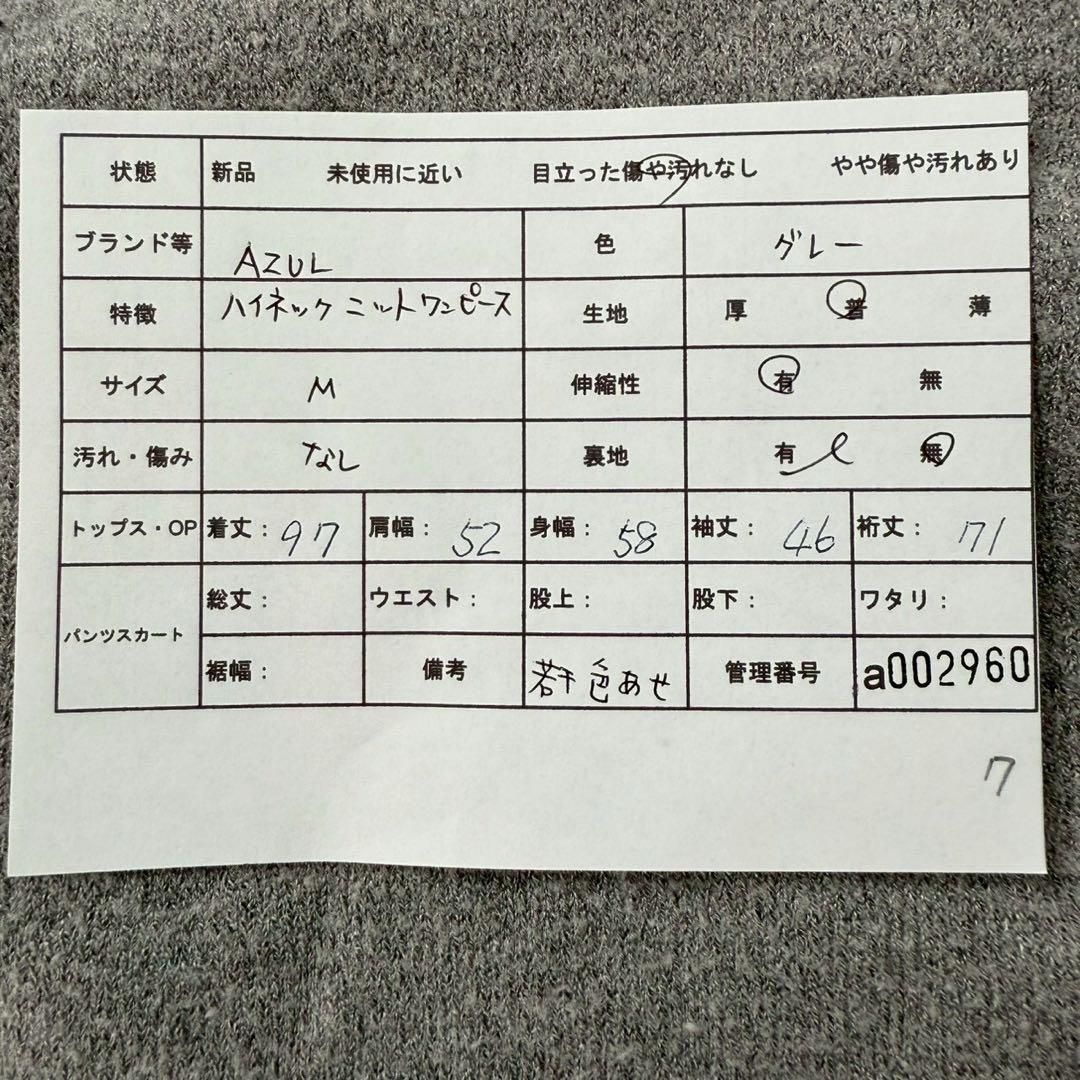 状態 新品 未使用に近い 目立った傷や汚れなし やや傷や汚れあり
ブランド等 AZUL 色 グレー
特徴 ハイネックニットワンピース 生地 厚 普 薄
サイズ M 伸縮性 有 無
汚れ・傷み なし 裏地 有 無
トップス・OP 着丈：97 肩幅：52 身幅：58 袖丈：46 裄丈：71
パンツスカート 総丈： ウエスト： 股上： 股下： ワタリ：
裾幅： 備考 若干色あせ 管理番号 a002960
7